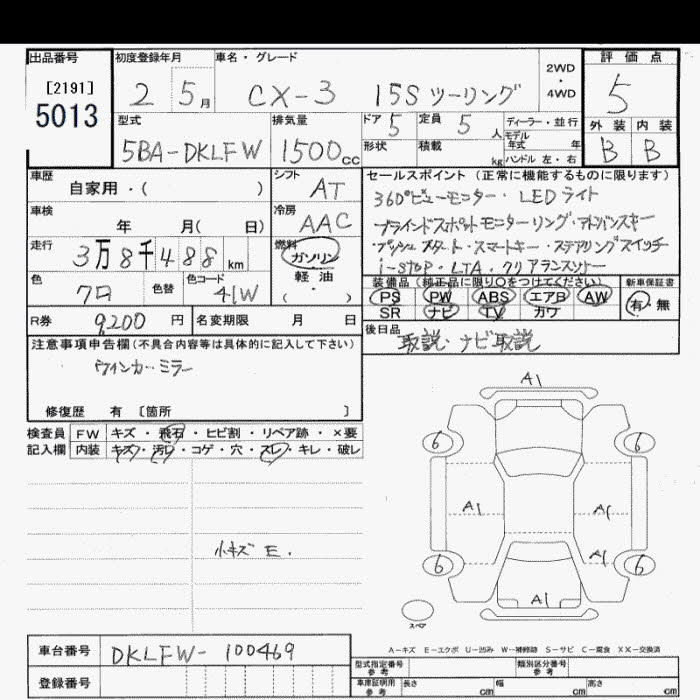 出品番号
[2191]
5013
初度登録年月
2 5月
車名・グレード
CX-3 15S ツーリング
2WD
・
4WD
評価点
5
外装 内装
B B
型式
5BA-DKLFW
排気量
1500cc
ドア 5
定員 5人
形状
積載 kg
ディーラー・並行
モデル
年式 年
ハンドル 左・右
車歴
自家用・( )
シフト
AT
車検
年 月( 日)
冷房
AAC
走行
3万8千488km
燃料
ガソリン
軽油
・
( )
色
クロ
色替
色コード
41W
R券 9200円
名変期限 月 日
セールスポイント (正常に機能するものに限ります)
360°ビューモニター・LEDライト
ブラインドスポットモニターリング・アドバンスキー
プッシュスタート・スマートキー・ステアリングスイッチ
i-STOP・LTA・クリアランスソナー
装備品 (純正品に限り○をつけてください)
PS PW ABS エアB AW
SR ナビ TV カワ
新車保証書
有・無
後日品
取説・ナビ取説
注意事項申告欄(不具合内容等は具体的に記入して下さい)
ウインカーミラー
修復歴 有 〔箇所 〕
検査員
記入欄
FW キズ・飛石・ヒビ割・リペア跡・×要
内装 キズ・汚れ・コゲ・穴・スレ・キレ・破レ
小キズ E.
A1
6 6
A1 A1
A1
6 6
A1
スペア
A-キズ E-エクボ U-凹み W-補修跡 S-サビ C-腐食 XX-交換済
車台番号
DKLFW-100469
登録番号
型式指定番号
参考
類別区分番号
参考
車庫証明用
参考
長さ cm
幅 cm
高さ cm